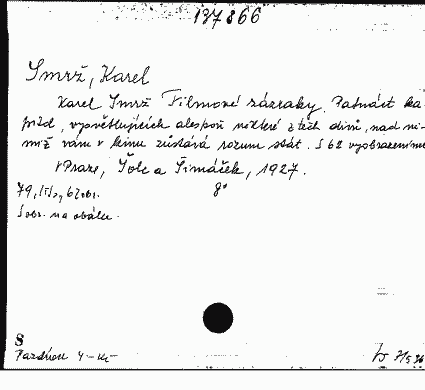 137866
Smrž, Karel
Karel Smrž Filmové zázraky. Patnáct ka-
pitol, vysvětlujících alespoň některé z těch divů, nad ni-
miž vám v kinu zůstává rozum stát. S 62 vyobrazeními
V Praze, Šolc a Šimáček, 1927.
79, [1] s, 62 obr. 8°
S obr. na obálce.
S
4 - Kč